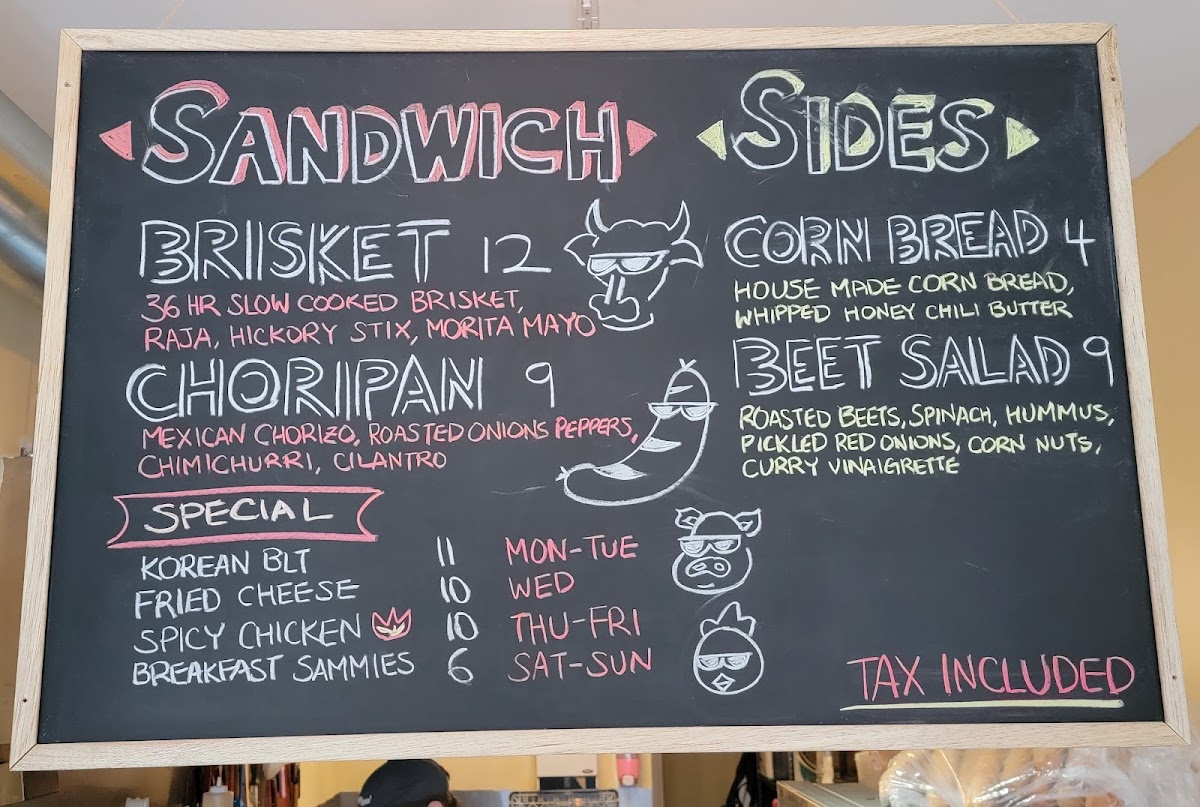 SANDWICH
BRISKET 12
36 HR SLOW COOKED BRISKET,
RAJA, HICKORY STIX, MORITA MAYO
CHORIPAN 9
MEXICAN CHORIZO, ROASTED ONIONS PEPPERS,
CHIMICHURRI, CILANTRO
SPECIAL
KOREAN BLT 11 MON-TUE
FRIED CHEESE 10 WED
SPICY CHICKEN 10 THU-FRI
BREAKFAST SAMMIES 6 SAT-SUN
SIDES
CORN BREAD 4
HOUSE MADE CORN BREAD,
WHIPPED HONEY CHILI BUTTER
BEET SALAD 9
ROASTED BEETS, SPINACH, HUMMUS,
PICKLED RED ONIONS, CORN NUTS,
CURRY VINAIGRETTE
TAX INCLUDED